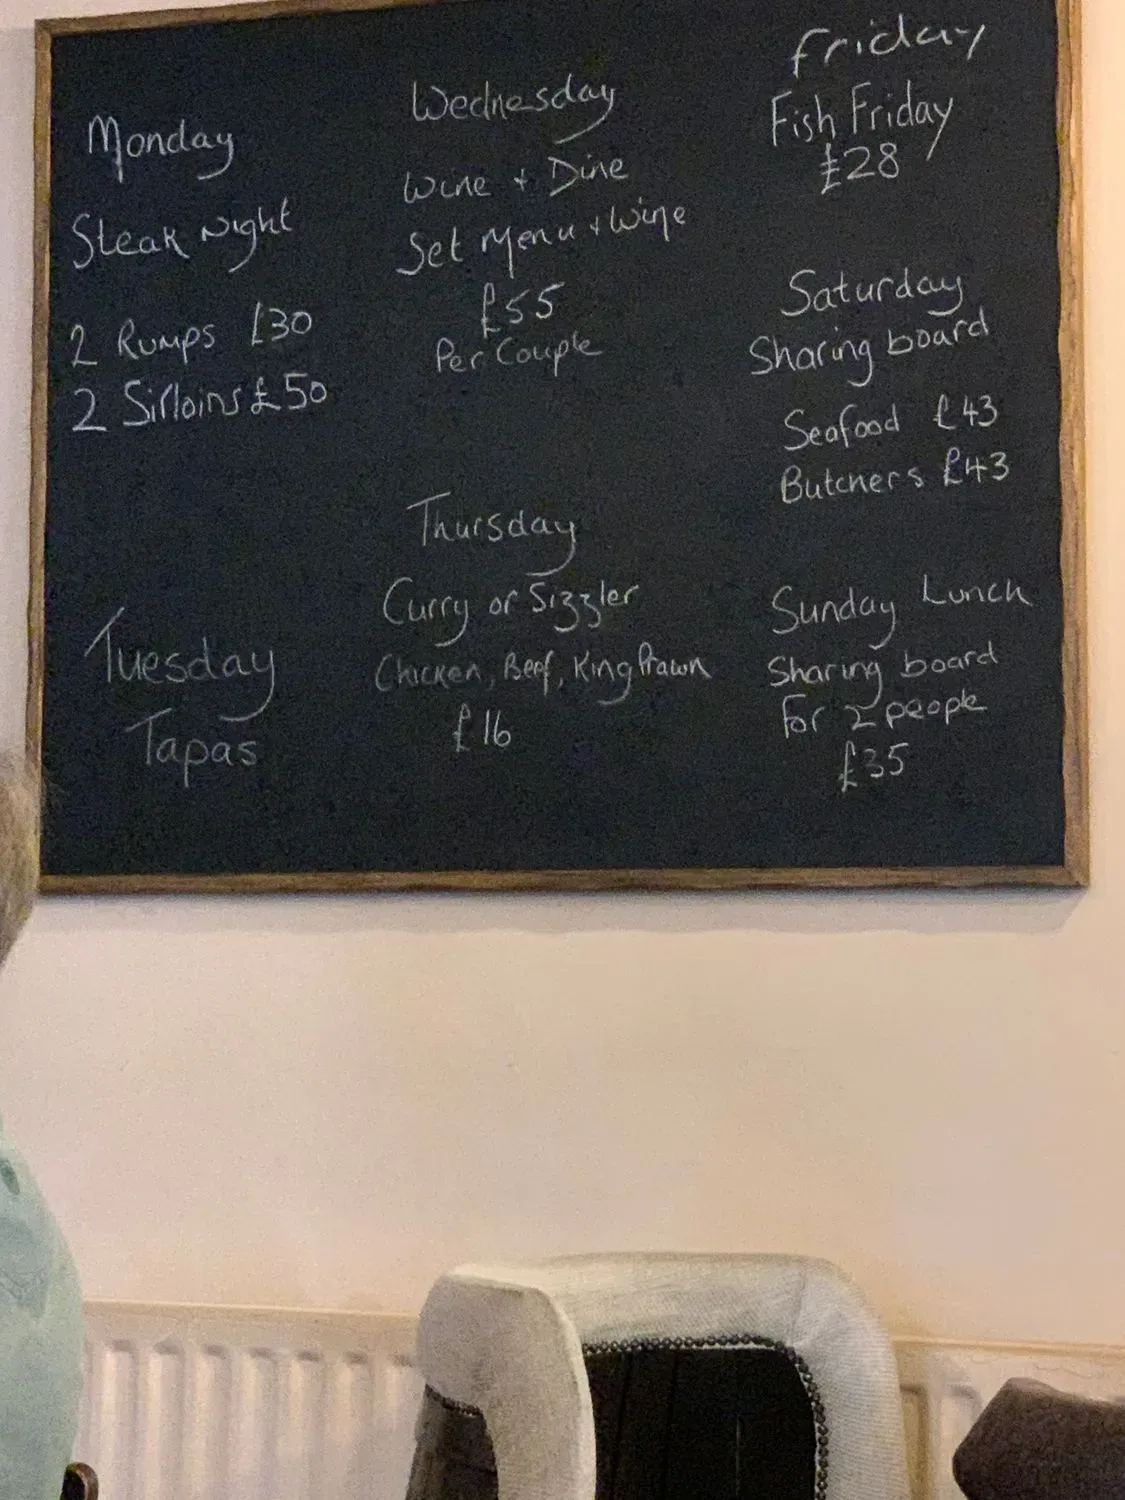 Monday
Steak Night
2 Rumps £30
2 Sirloins £50
Tuesday
Tapas
Wednesday
Wine + Dine
Set Menu + Wine
£55
Per Couple
Thursday
Curry or Sizzler
Chicken, Beef, King Prawn
£16
Friday
Fish Friday
£28
Saturday
Sharing board
Seafood £43
Butchers £43
Sunday Lunch
Sharing board
For 2 people
£35